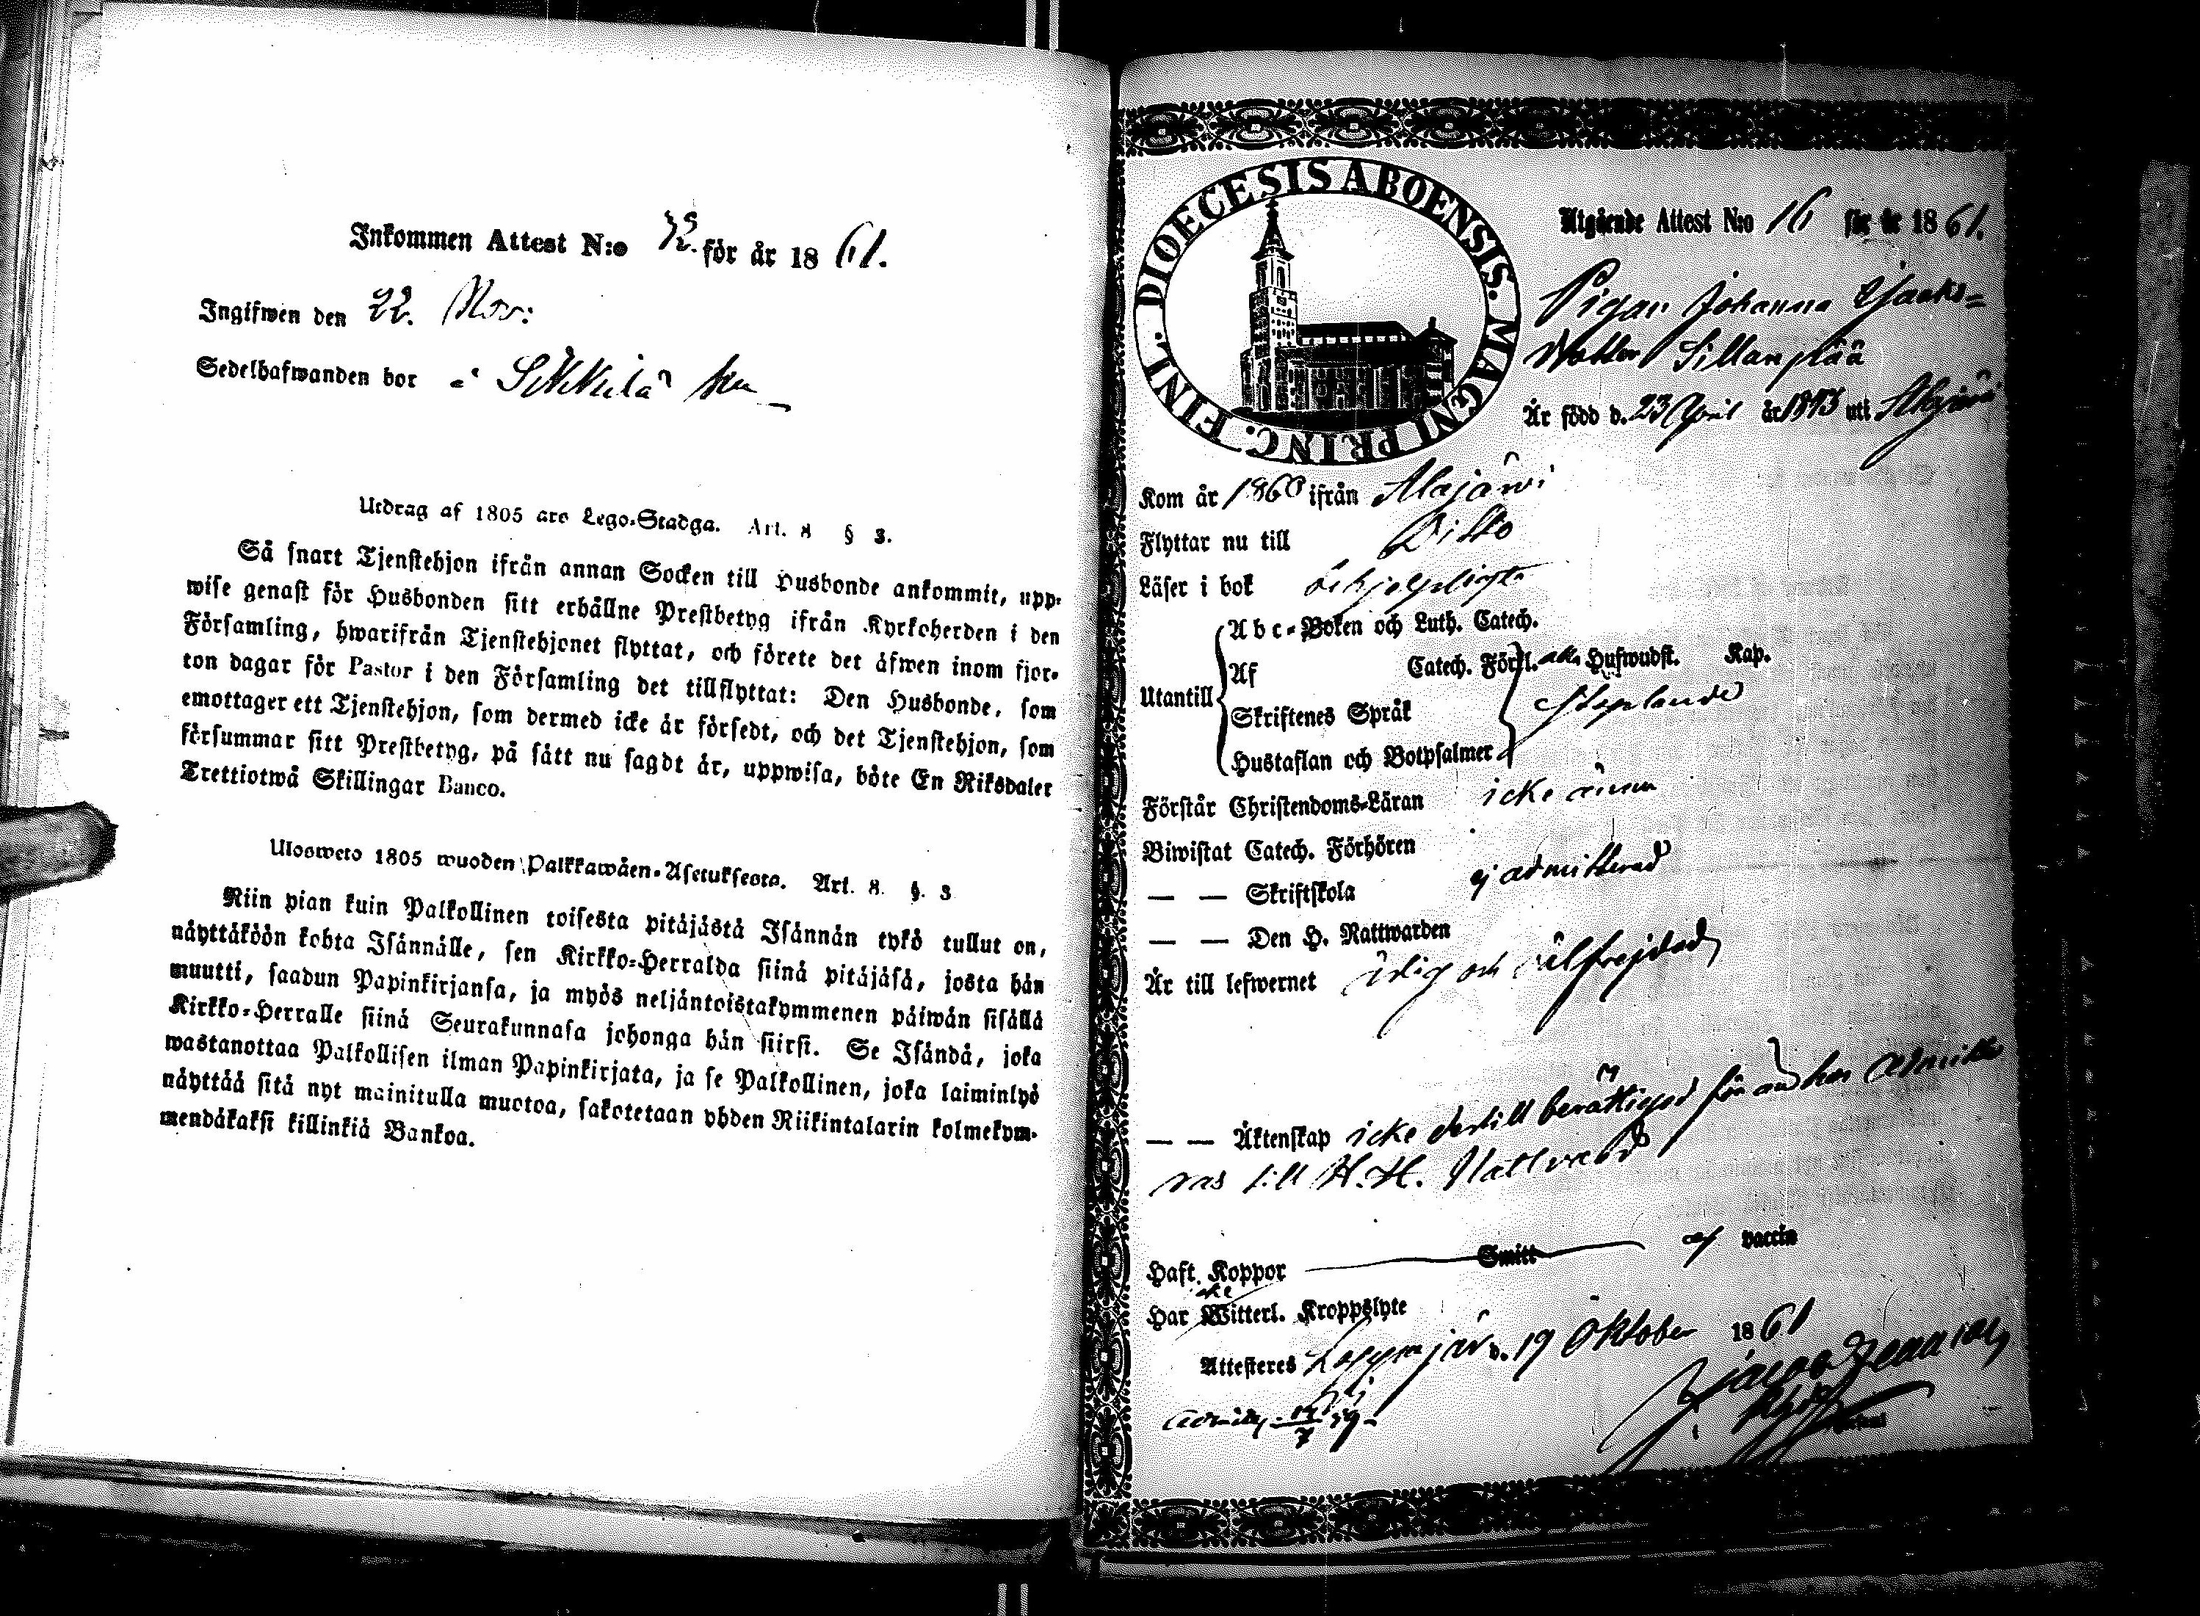 Inkommen Attest N:o 72. för år 1861.
Ingifwen den 22. Nov:
Sedelhafwanden bor i
Utdrag af 1805 ars Lego-Stadga. Art. 8 § 3.
Så snart Tjenstehjon ifrån annan Socken till Husbonde ankommit, upp-
wise genast för Husbonden sitt erhållne Prestbetyg ifrån Kyrkoherden i den
Församling, hwarifrån Tjenstehjonet flyttat, och förete det äfwen inom fjor-
ton dagar för Pastor i den Församling det tillflyttat: Den Husbonde, som
emottager ett Tjenstehjon, som dermed icke är försedt, och det Tjenstehjon, som
försummar sitt Prestbetyg, på sätt nu sagdt är, uppwisa, böte En Riksdaler
Trettiotwå Skillingar Banco.
Ulosweto 1805 wuoden Palkkawäen-Asetuksesta. Art. 8. §. 3
Niin pian kuin Palkollinen toisesta pitäjästä Isännän tykö tullut on,
näyttäköön kohta Isännälle, sen Kirkko-Herralda siinä pitäjäsä, josta hän
muutti, saadun Papinkirjansa, ja myös neljäntoistakymmenen päiwän sisällä
Kirkko-Herralle siinä Seurakunnasa johonga hän siirsi. Se Isändä, joka
wastanottaa Palkollisen ilman Papinkirjata, ja se Palkollinen, joka laiminlyö
näyttää sitä nyt mainitulla muotoa, sakotetaan yhden Riikintalarin kolmekym-
mendäkaksi killinkiä Bankoa.
DIOECESIS ABOENSIS. MAGNI PRINC. FINL.
Utgående Attest N:o 16 för år 1861.
Pigan Johanna Isaaks-
dotter Sillanpää
Är född d. 23 April år 1843 uti Alajärvi
Kom år 1860 ifrån Alajärvi
Flyttar nu till Ditto
Läser i bok behjelpligt
Utantill
Abc-Boken och Luth. Catech.
Af Catech. Förkl. alla Hufwudst. Kap.
Skriftenes Språk
Hustaflan och Botpsalmer
Förstår Christendoms-Läran icke ännu
Biwistat Catech. Förhören
— — Skriftskola ej admitterad
— — Den H. Nattwarden
Är till lefwernet ärlig och välfrejdad
— — Äktenskap icke dertill berättigad för än hon admitte
ras till H. H. Nattvard
Haft Koppor Smitt af vaccin
Har icke Witterl. Kroppslyte
Attesteras d. 19 Oktober 1861